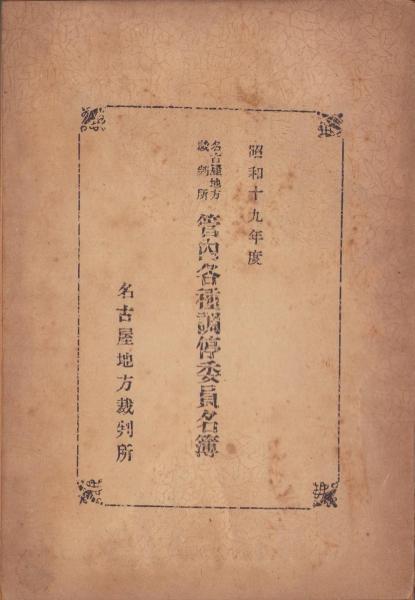 昭和十九年度
名古屋地方
裁判所
管内各種調停委員名簿
名古屋地方裁判所